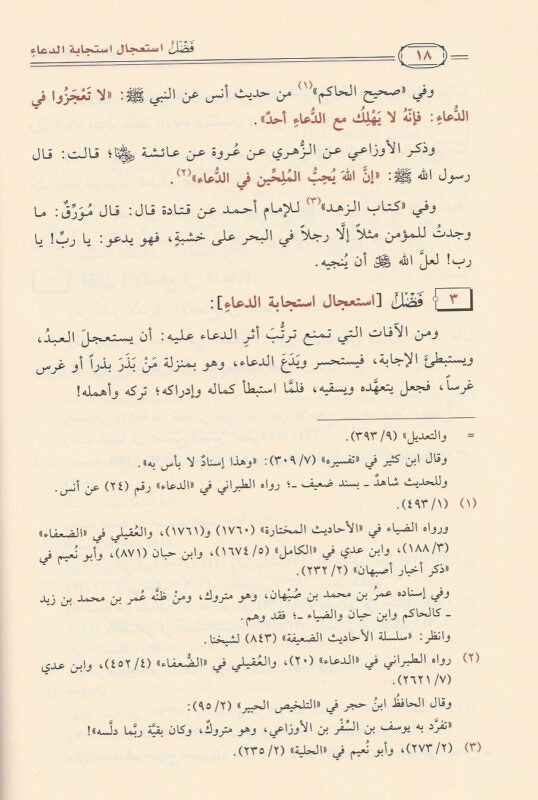 ١٨
فَصْل استعجال استجابة الدعاء
وفي «صحيح الحاكم»(١) من حديث أنس عن النبي ﷺ: «لا تَعْجَزُوا في
الدُّعاءِ: فإنَّهُ لا يَهْلِكُ مع الدُّعاءِ أحدٌ».
وذكر الأوزاعي عن الزهري عن عُروة عن عائشة رضي الله عنها؛ قالت: قال
رسول الله ﷺ: «إنَّ اللهَ يُحِبُّ المُلِحِّين في الدُّعاء»(٢).
وفي «كتاب الزهد»(٣) للإمام أحمد عن قتادة قال: قال مُوَرِّقٌ: ما
وجدتُ للمؤمن مثلاً إلَّا رجلاً في البحر على خشبةٍ، فهو يدعو: يا ربِّ! يا
رب! لعلَّ الله ﷻ أن يُنجيه.
٣ فَصْل [استعجال استجابة الدعاء]:
ومن الآفات التي تمنع ترتُّبَ أثرِ الدعاء عليه: أن يستعجلَ العبدُ،
ويستبطئَ الإجابة، فيستحسر ويَدَعَ الدعاء، وهو بمنزلة مَنْ بَذَرَ بذراً أو غرس
غرساً، فجعل يتعهَّده ويسقيه، فلمَّا استبطأ كماله وإدراكه؛ تركه وأهمله!
= والتعديل» (٣٩٣/٩).
وقال ابن كثير في «تفسيره» (٣٠٩/٧): «وهذا إسنادٌ لا بأس به».
وللحديث شاهدٌ ـ بسند ضعيف ـ؛ رواه الطبراني في «الدعاء» رقم (٢٤) عن أنس.
(١) (٤٩٣/١).
ورواه الضياء في «الأحاديث المختارة» (١٧٦٠) و(١٧٦١)، والعُقيلي في «الضعفاء»
(١٨٨/٣)، وابن عدي في «الكامل» (١٦٧٤/٥)، وابن حبان (٨٧١)، وأبو نُعيم في
«ذكر أخبار أصبهان» (٢٣٢/٢).
وفي إسناده عمرُ بن محمد بن صُبْهان، وهو متروك، ومنْ ظنَّه عُمر بن محمد بن زيد
ـ كالحاكم وابن حبان والضياء ـ؛ فقد وهم.
وانظر: «سلسلة الأحاديث الضعيفة» (٨٤٣) لشيخنا.
(٢) رواه الطبراني في «الدعاء» (٢٠)، والعُقيلي في «الضُّعفاء» (٤٥٢/٤)، وابن عدي
(٢٦٢١/٧).
وقال الحافظُ ابنُ حجر في «التلخيص الحبير» (٩٥/٢):
«تفرَّد به يوسف بن السِّفْر بن الأوزاعي، وهو متروكٌ، وكان بقيَّة ربَّما دلَّسه»!
(٣) (٢٧٣/٢)، وأبو نُعيم في «الحلية» (٢٣٥/٢).